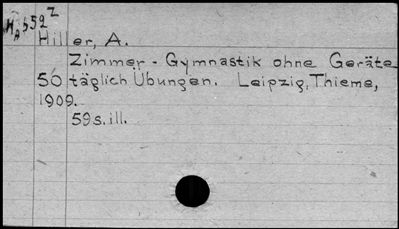 Hiller, A.
Zimmer - Gymnastik ohne Geräte
50 täglich Übungen. Leipzig, Thieme,
1909.
59 s. ill.